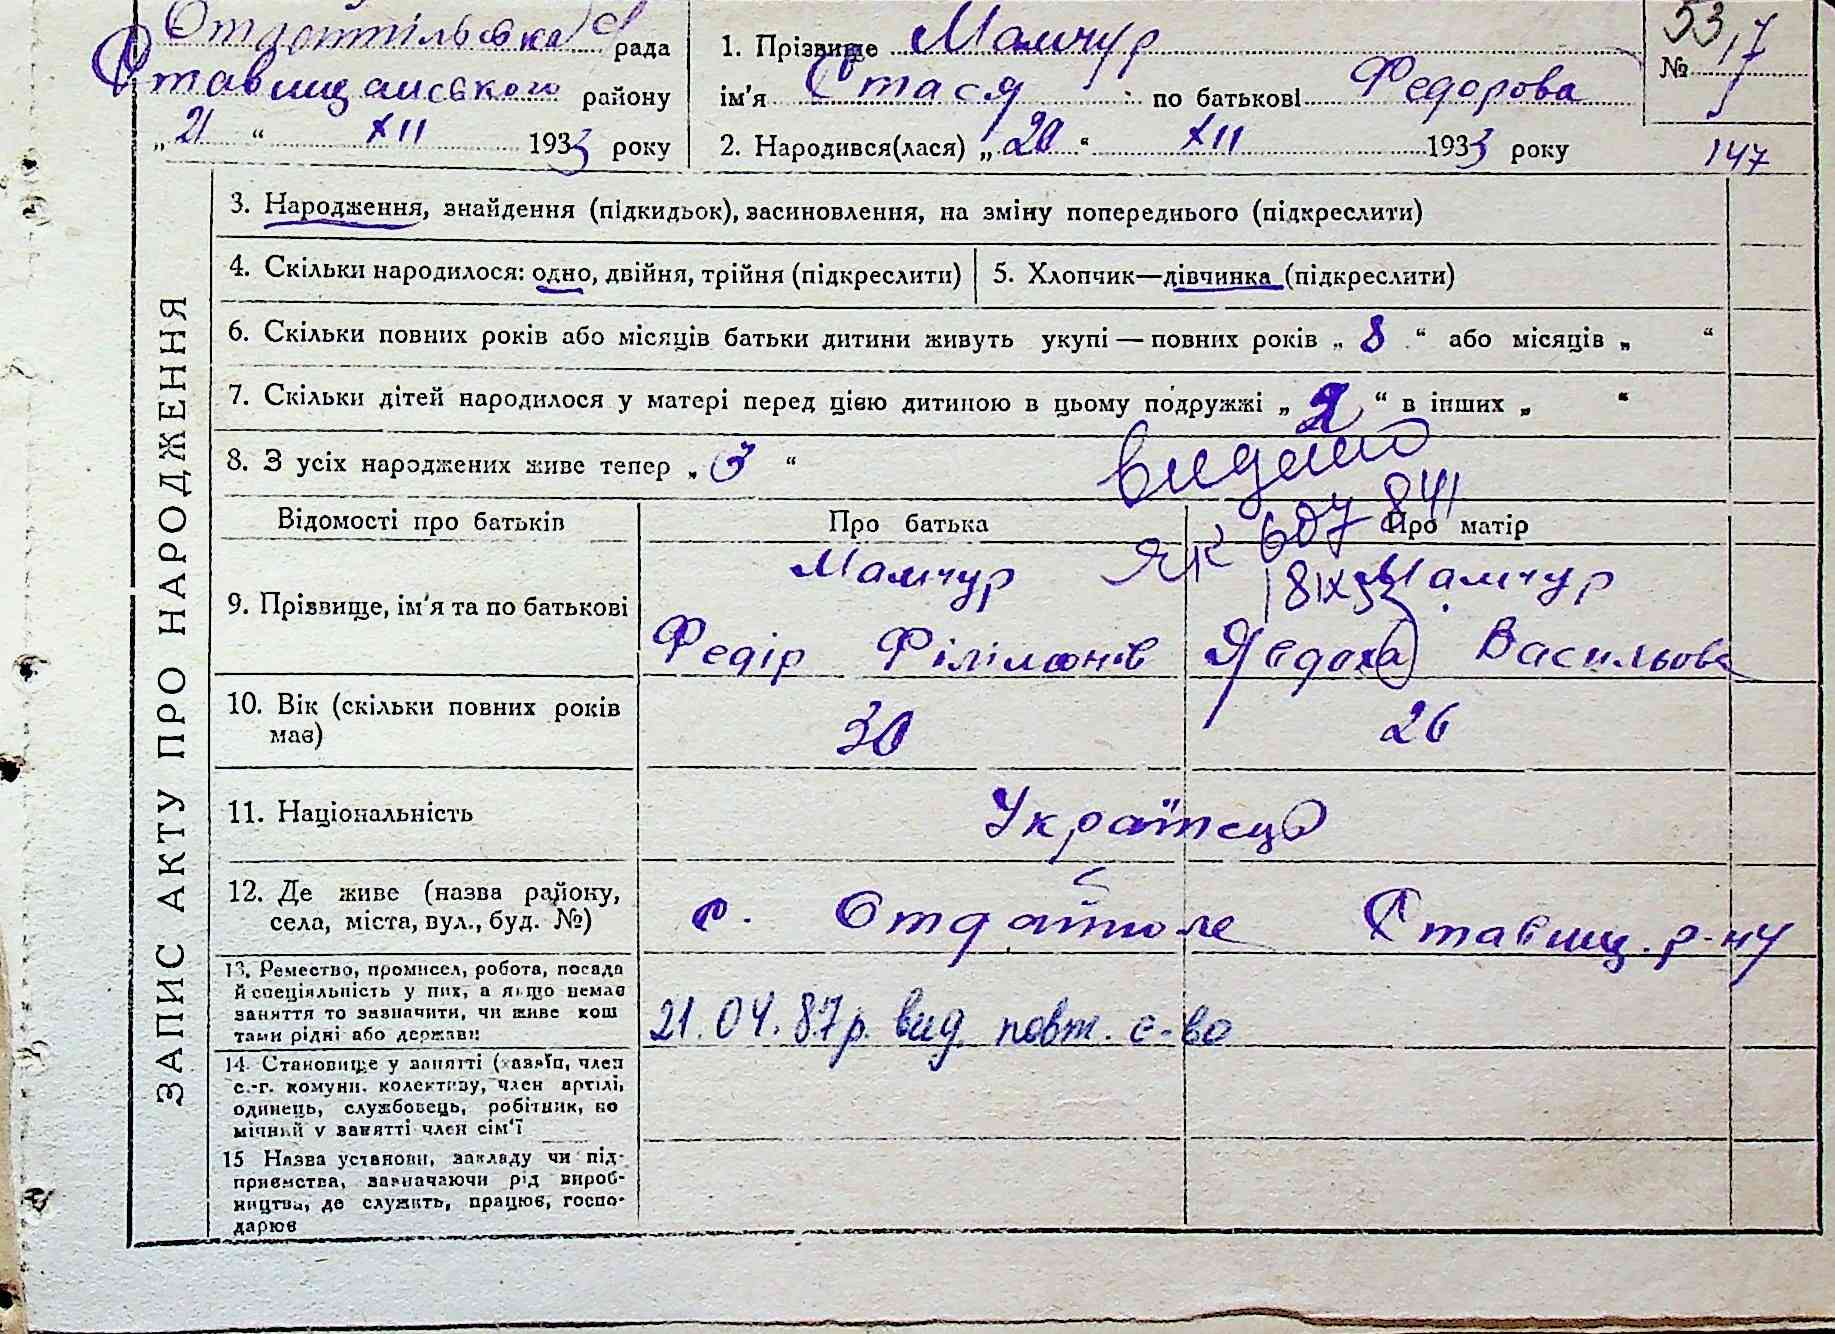 рада
Ставищанського району
„ 21 “ XII 1933 року
1. Прізвище Мамчур
ім'я Стася по батькові Федорова
2. Народився(лася) „ 20 “ XII 1933 року
53
№ 17
147
ЗАПИС АКТУ ПРО НАРОДЖЕННЯ
3. Народження, знайдення (підкидьок), засиновлення, на зміну попереднього (підкреслити)
4. Скільки народилося: одно, двійня, трійня (підкреслити)
5. Хлопчик—дівчинка (підкреслити)
6. Скільки повних років або місяців батьки дитини живуть укупі — повних років „ 8 “ або місяців „ “
7. Скільки дітей народилося у матері перед цією дитиною в цьому подружжі „ 2 “ в інших „ “
8. З усіх народжених живе тепер „ 3 “
видано
ЯК 607 841
Відомості про батьків
Про батька
Про матір
9. Прізвище, ім'я та по батькові
Мамчур
Федір Філімонів
Мамчур
Явдоха Васильова
10. Вік (скільки повних років
має)
30
26
11. Національність
Українец
12. Де живе (назва району,
села, міста, вул., буд. №)
с. Отдайполе Ставищ. р-ну
13. Ремество, промисел, робота, посада
й спеціяльність у них, а якщо немає
заняття то зазначити, чи живе кош
тами рідні або держави
21.04.87р. вид. повт. с-во
14. Становище у занятті (хазяїн, член
с.-г. комуни, колективу, член артілі,
одинець, службовець, робітник, по
мічний у занятті член сім'ї
15 Назва установи, закладу чи під-
приємства, зазначаючи рід вироб-
ництва, де служить, працює, госпо-
дарює